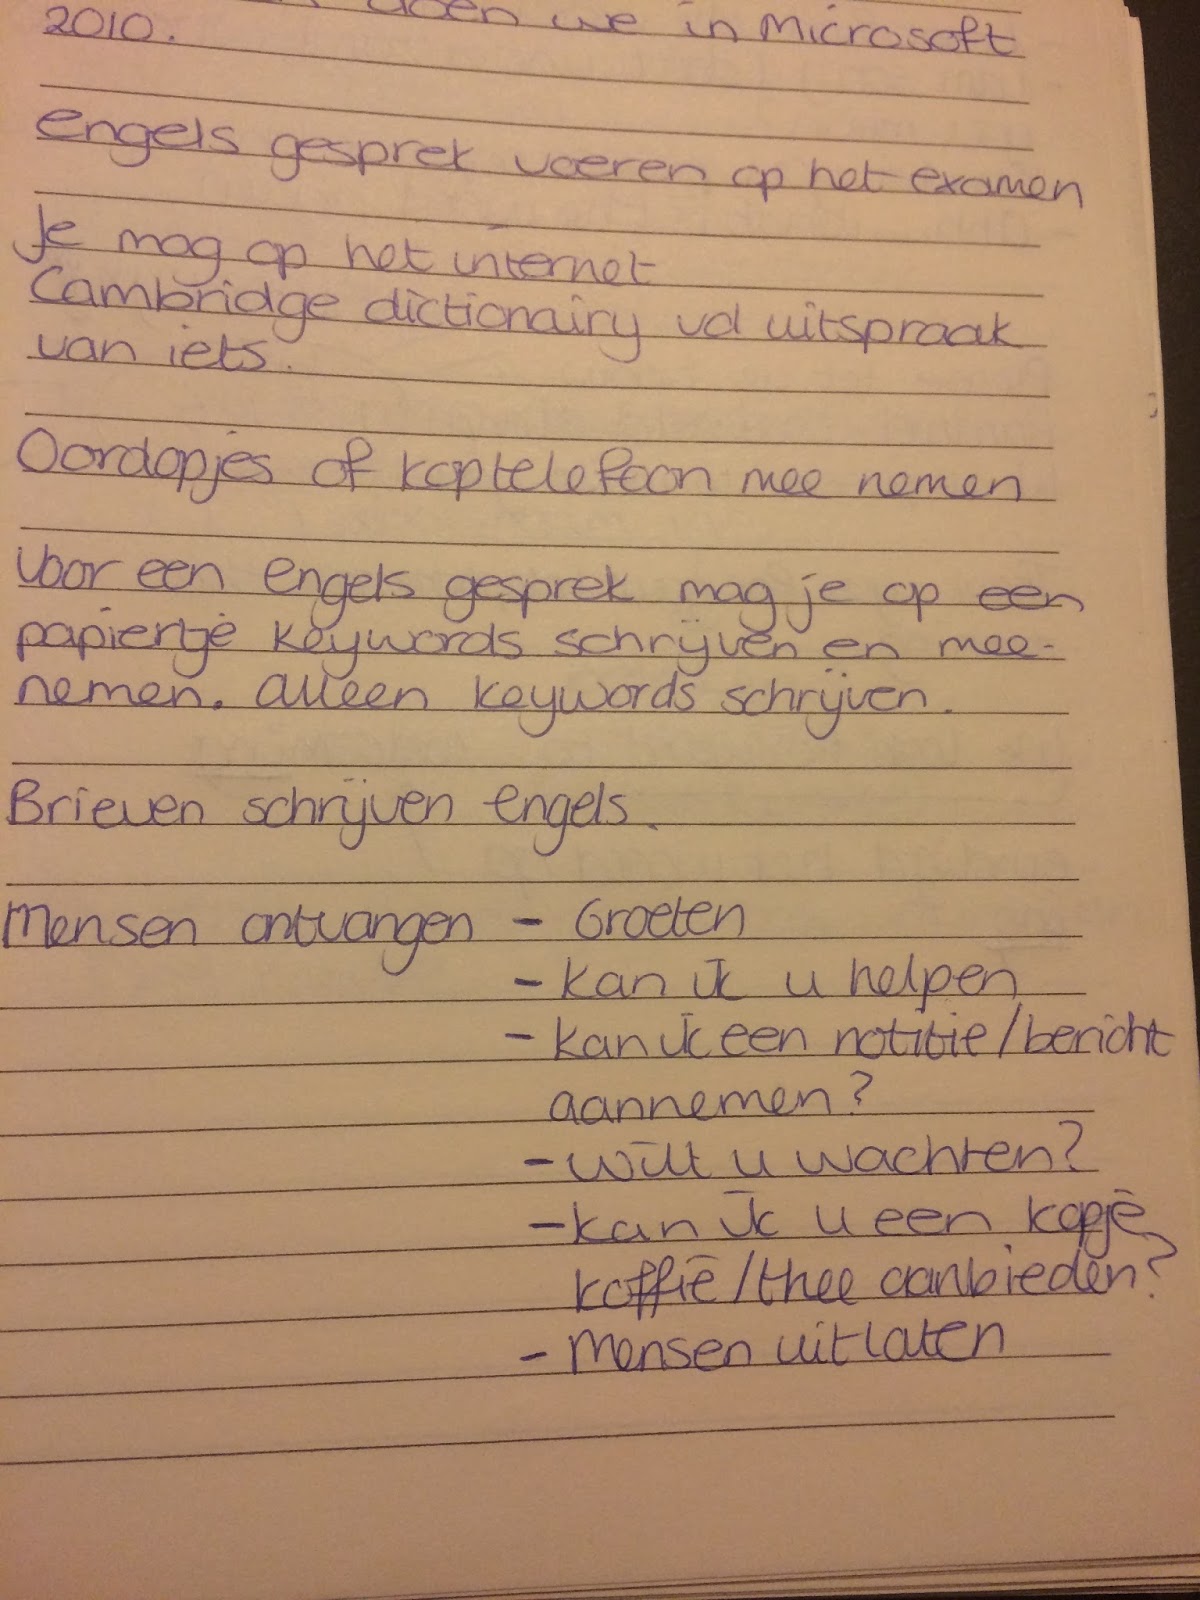 doen we in Microsoft
2010.
Engels gesprek voeren op het examen
Je mag op het internet
Cambridge dictionairy vd uitspraak
van iets.
Oordopjes of koptelefoon mee nemen
Voor een engels gesprek mag je op een
papiertje keywords schrijven en mee-
nemen. Alleen keywords schrijven.
Brieven schrijven engels.
Mensen ontvangen - Groeten
- Kan ik u helpen
- Kan ik een notitie/bericht
aannemen?
- Wilt u wachten?
- Kan ik u een kopje
koffie/thee aanbieden?
- Mensen uitlaten